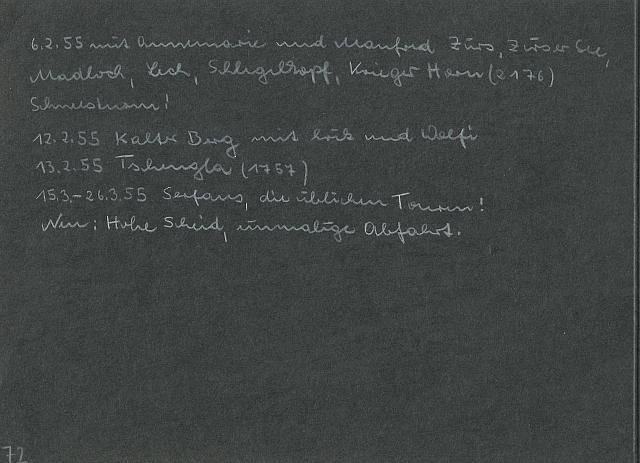 6.2.55 mit Annemarie und Manfred Zürs, Zürser See,
Madloch, Lech, Schlegelkopf, Krieger Horn (2176)
Schneesturm!
12.2.55 Kalte Berg mit und Wolfi
13.2.55 Tschengla (1757)
15.3.-26.3.55 Serfaus, die üblichen Touren!
Neu: Hohe Scheid, einmalige Abfahrt.
72